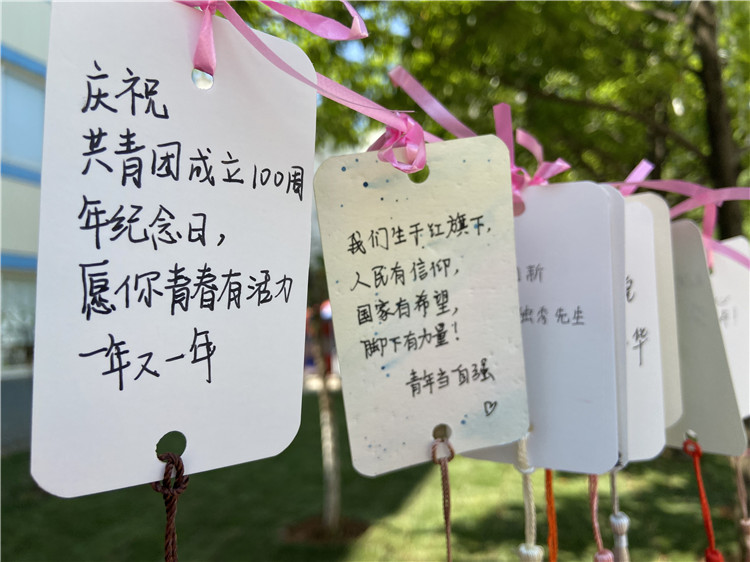 庆祝
共青团成立100周
年纪念日,
愿你青春有活力
一年又一年
我们生于红旗下,
人民有信仰,
国家有希望,
脚下有力量!
青年当自强
新
先生
华